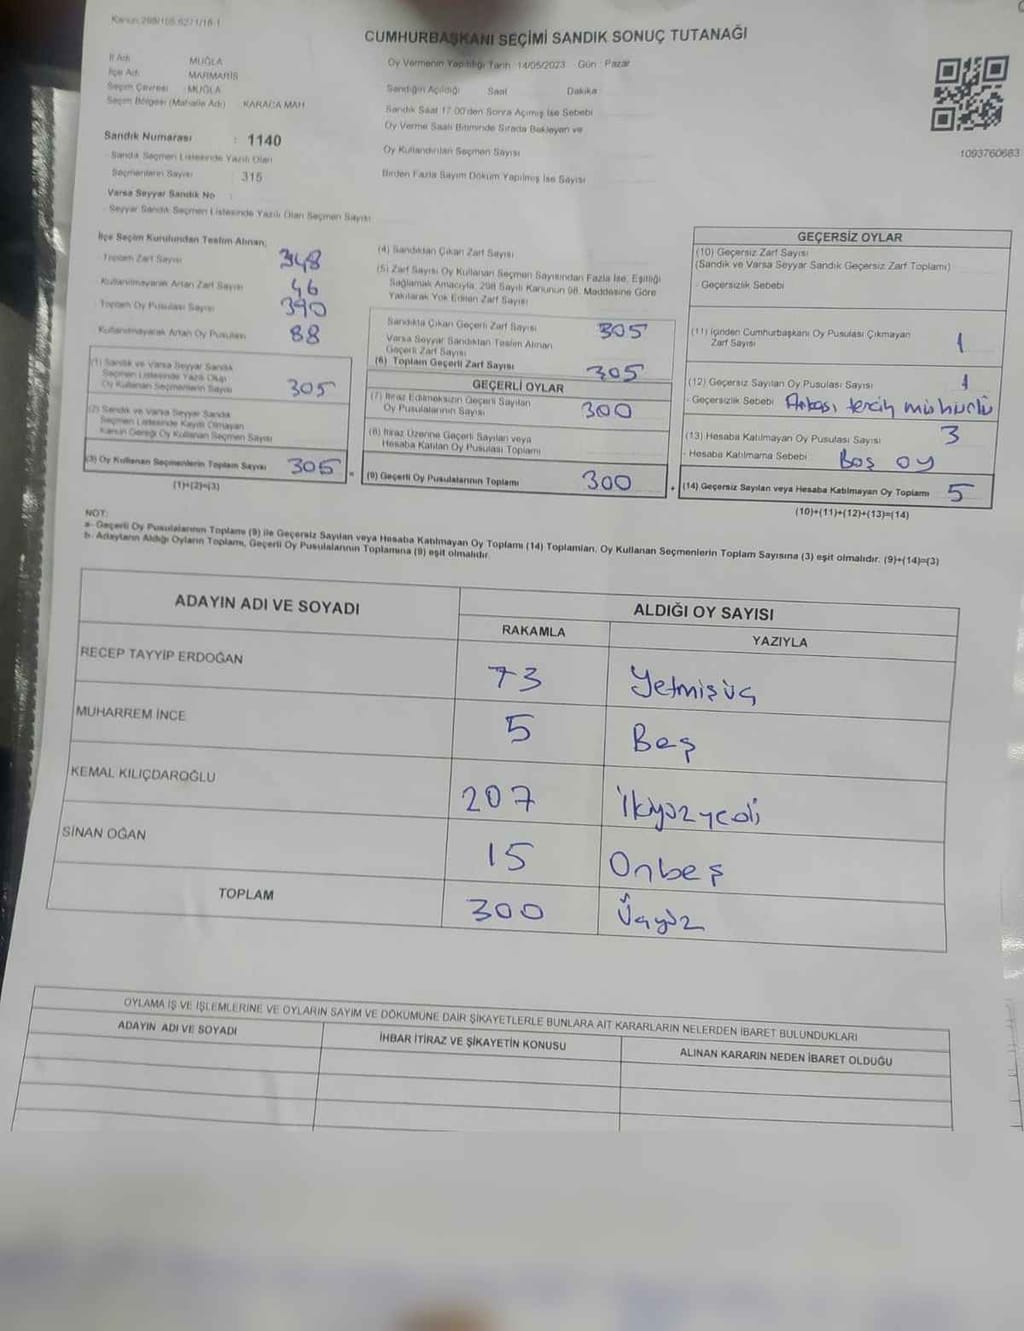 Kanun:298/105.6271/16-1
CUMHURBAŞKANI SEÇİMİ SANDIK SONUÇ TUTANAĞI
İl Adı MUĞLA
İlçe Adı MARMARİS
Seçim Çevresi :MUĞLA
Seçim Bölgesi (Mahalle Adı) KARACA MAH
Oy Vermenin Yapıldığı Tarih :14/05/2023 Gün : Pazar
Sandığın Açıldığı Saat Dakika
Sandık Saat 17:00'den Sonra Açımış İse Sebebi
Oy Verme Saati Bitiminde Sırada Bekleyen ve
Oy Kullandırılan Seçmen Sayısı
Birden Fazla Sayım Döküm Yapılmış İse Sayısı
1093760683
Sandık Numarası : 1140
Sandık Seçmen Listesinde Yazılı Olan
Seçmenlerin Sayısı 315
Varsa Seyyar Sandık No :
Seyyar Sandık Seçmen Listesinde Yazılı Olan Seçmen Sayısı
İlçe Seçim Kurulundan Teslim Alınan;
Toplam Zarf Sayısı 348
Kullanılmayarak Artan Zarf Sayısı 46
Toplam Oy Pusulası Sayısı 390
Kullanılmayarak Artan Oy Pusulası 88
(1) Sandık ve Varsa Seyyar Sandık
Seçmen Listesinde Yazılı Olup
Oy Kullanan Seçmenlerin Sayısı 305
(2) Sandık ve Varsa Seyyar Sandık
Seçmen Listesinde Kayıtlı Olmayan
Kanun Gereği Oy Kullanan Seçmen Sayısı
(3) Oy Kullanan Seçmenlerin Toplam Sayısı 305
(1)+(2)=(3)
(4) Sandıktan Çıkan Zarf Sayısı
(5) Zarf Sayısı Oy Kullanan Seçmen Sayısından Fazla İse, Eşitliği
Sağlamak Amacıyla, 298 Sayılı Kanunun 98. Maddesine Göre
Yakılarak Yok Edilen Zarf Sayısı
Sandıkta Çıkan Geçerli Zarf Sayısı 305
Varsa Seyyar Sandıktan Teslim Alınan
Geçerli Zarf Sayısı
(6) Toplam Geçerli Zarf Sayısı 305
=
GEÇERLİ OYLAR
(7) İtiraz Edilmeksizin Geçerli Sayılan
Oy Pusulalarının Sayısı 300
(8) İtiraz Üzerine Geçerli Sayılan veya
Hesaba Katılan Oy Pusulası Toplamı
(9) Geçerli Oy Pusulalarının Toplamı 300
+
GEÇERSİZ OYLAR
(10) Geçersiz Zarf Sayısı
(Sandık ve Varsa Seyyar Sandık Geçersiz Zarf Toplamı)
- Geçersizlik Sebebi
(11) İçinden Cumhurbaşkanı Oy Pusulası Çıkmayan
Zarf Sayısı 1
(12) Geçersiz Sayılan Oy Pusulası Sayısı 1
- Geçersizlik Sebebi Arkası tercih mühürlü
(13) Hesaba Katılmayan Oy Pusulası Sayısı 3
- Hesaba Katılmama Sebebi Boş oy
(14) Geçersiz Sayılan veya Hesaba Katılmayan Oy Toplamı 5
(10)+(11)+(12)+(13)=(14)
NOT:
a- Geçerli Oy Pusulalarının Toplamı (9) ile Geçersiz Sayılan veya Hesaba Katılmayan Oy Toplamı (14) Toplamları, Oy Kullanan Seçmenlerin Toplam Sayısına (3) eşit olmalıdır. (9)+(14)=(3)
b- Adayların Aldığı Oyların Toplamı, Geçerli Oy Pusulalarının Toplamına (9) eşit olmalıdır.
ADAYIN ADI VE SOYADI ALDIĞI OY SAYISI
RAKAMLA YAZIYLA
RECEP TAYYİP ERDOĞAN 73 Yetmişüç
MUHARREM İNCE 5 Beş
KEMAL KILIÇDAROĞLU 207 İkiyüzyedi
SİNAN OĞAN 15 Onbeş
TOPLAM 300 Üçyüz
OYLAMA İŞ VE İŞLEMLERİNE VE OYLARIN SAYIM VE DÖKÜMÜNE DAİR ŞİKAYETLERLE BUNLARA AİT KARARLARIN NELERDEN İBARET BULUNDUKLARI
ADAYIN ADI VE SOYADI İHBAR İTİRAZ VE ŞİKAYETİN KONUSU ALINAN KARARIN NEDEN İBARET OLDUĞU